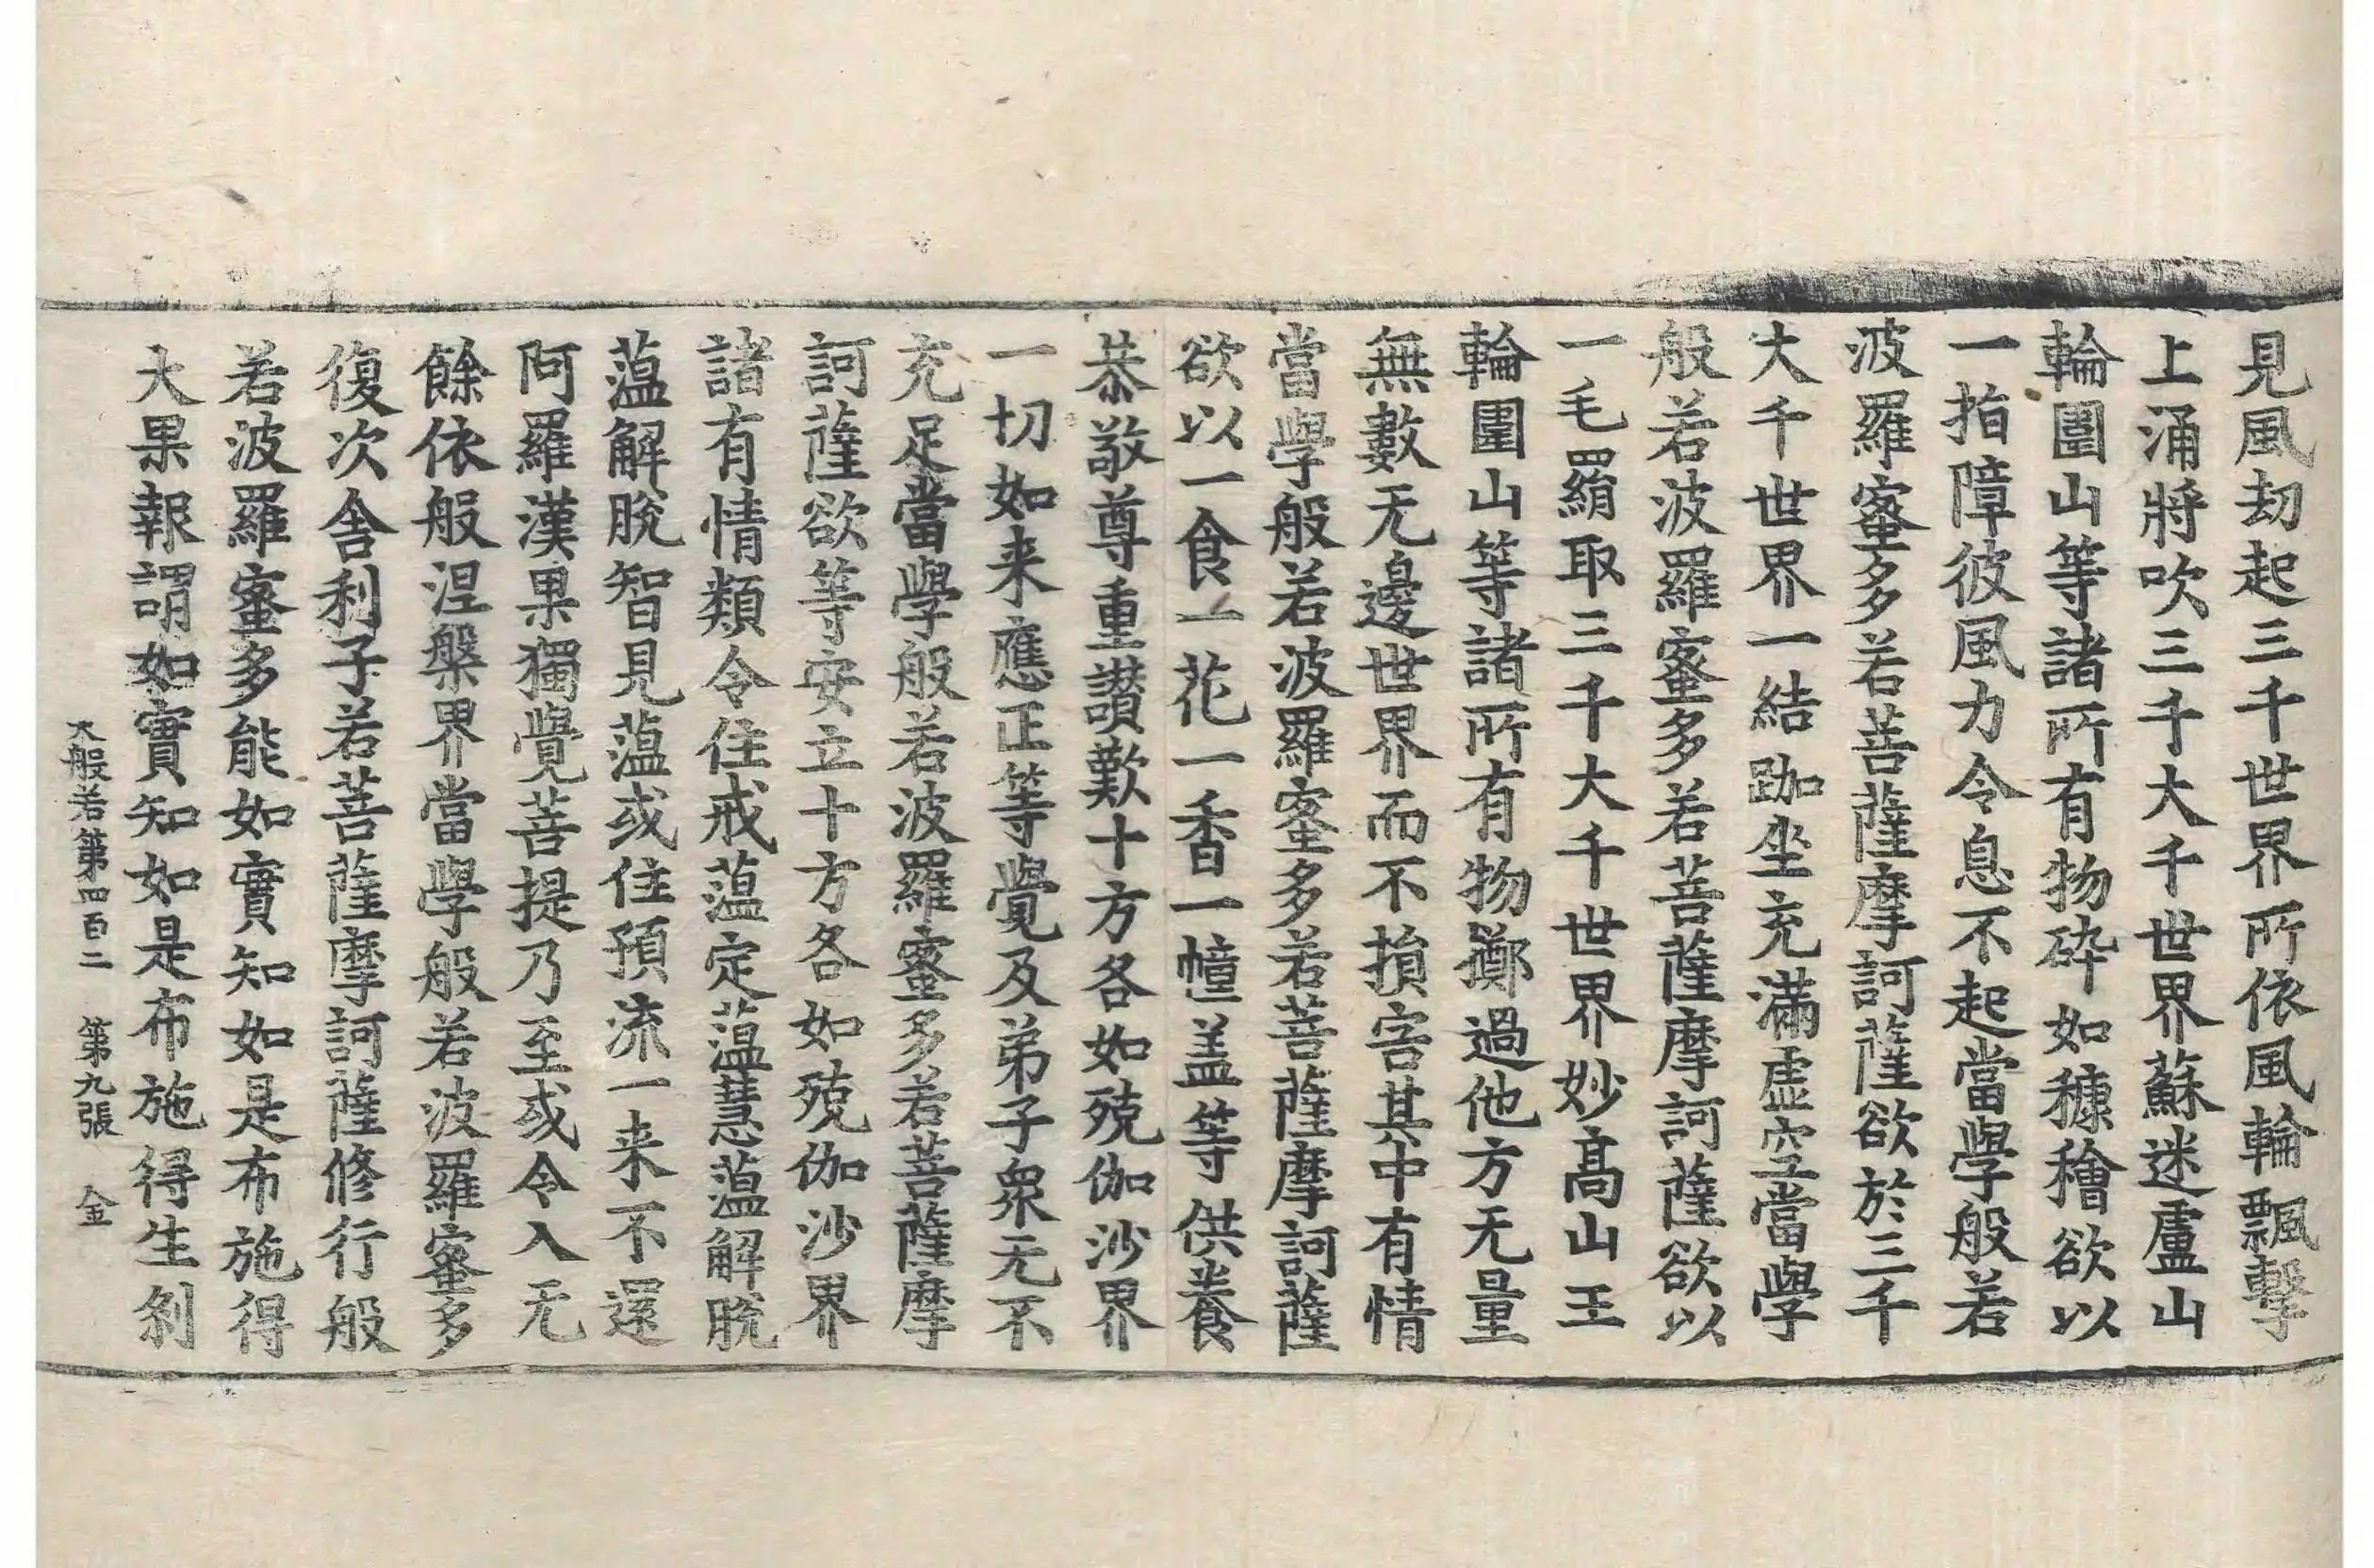 見風劫起三千世界所依風輪飄擊
上涌將吹三千大千世界蘇迷盧山
輪圍山等諸所有物碎如穅穭欲以
一指障彼風力令息不起當學般若
波羅蜜多若菩薩摩訶薩欲於三千
大千世界一結跏坐充滿虛空當學
般若波羅蜜多若菩薩摩訶薩欲以
一毛羂取三千大千世界妙高山王
輪圍山等諸所有物擲過他方无量
無數无邊世界而不損害其中有情
當學般若波羅蜜多若菩薩摩訶薩
欲以一食一花一香一幢盖等供養
恭敬尊重讚歎十方各如殑伽沙界
一切如来應正等覺及弟子衆无不
充足當學般若波羅蜜多若菩薩摩
訶薩欲等安立十方各如殑伽沙界
諸有情類令住戒蕰定蕰慧蕰解脫
蕰解脫智見蕰或住預流一来不還
阿羅漢果獨覺菩提乃至或令入无
餘依般涅槃界當學般若波羅蜜多
復次舍利子若菩薩摩訶薩修行般
若波羅蜜多能如實知如是布施得
大果報謂如實知如是布施得生剎
大般若第四百二　第九張　金